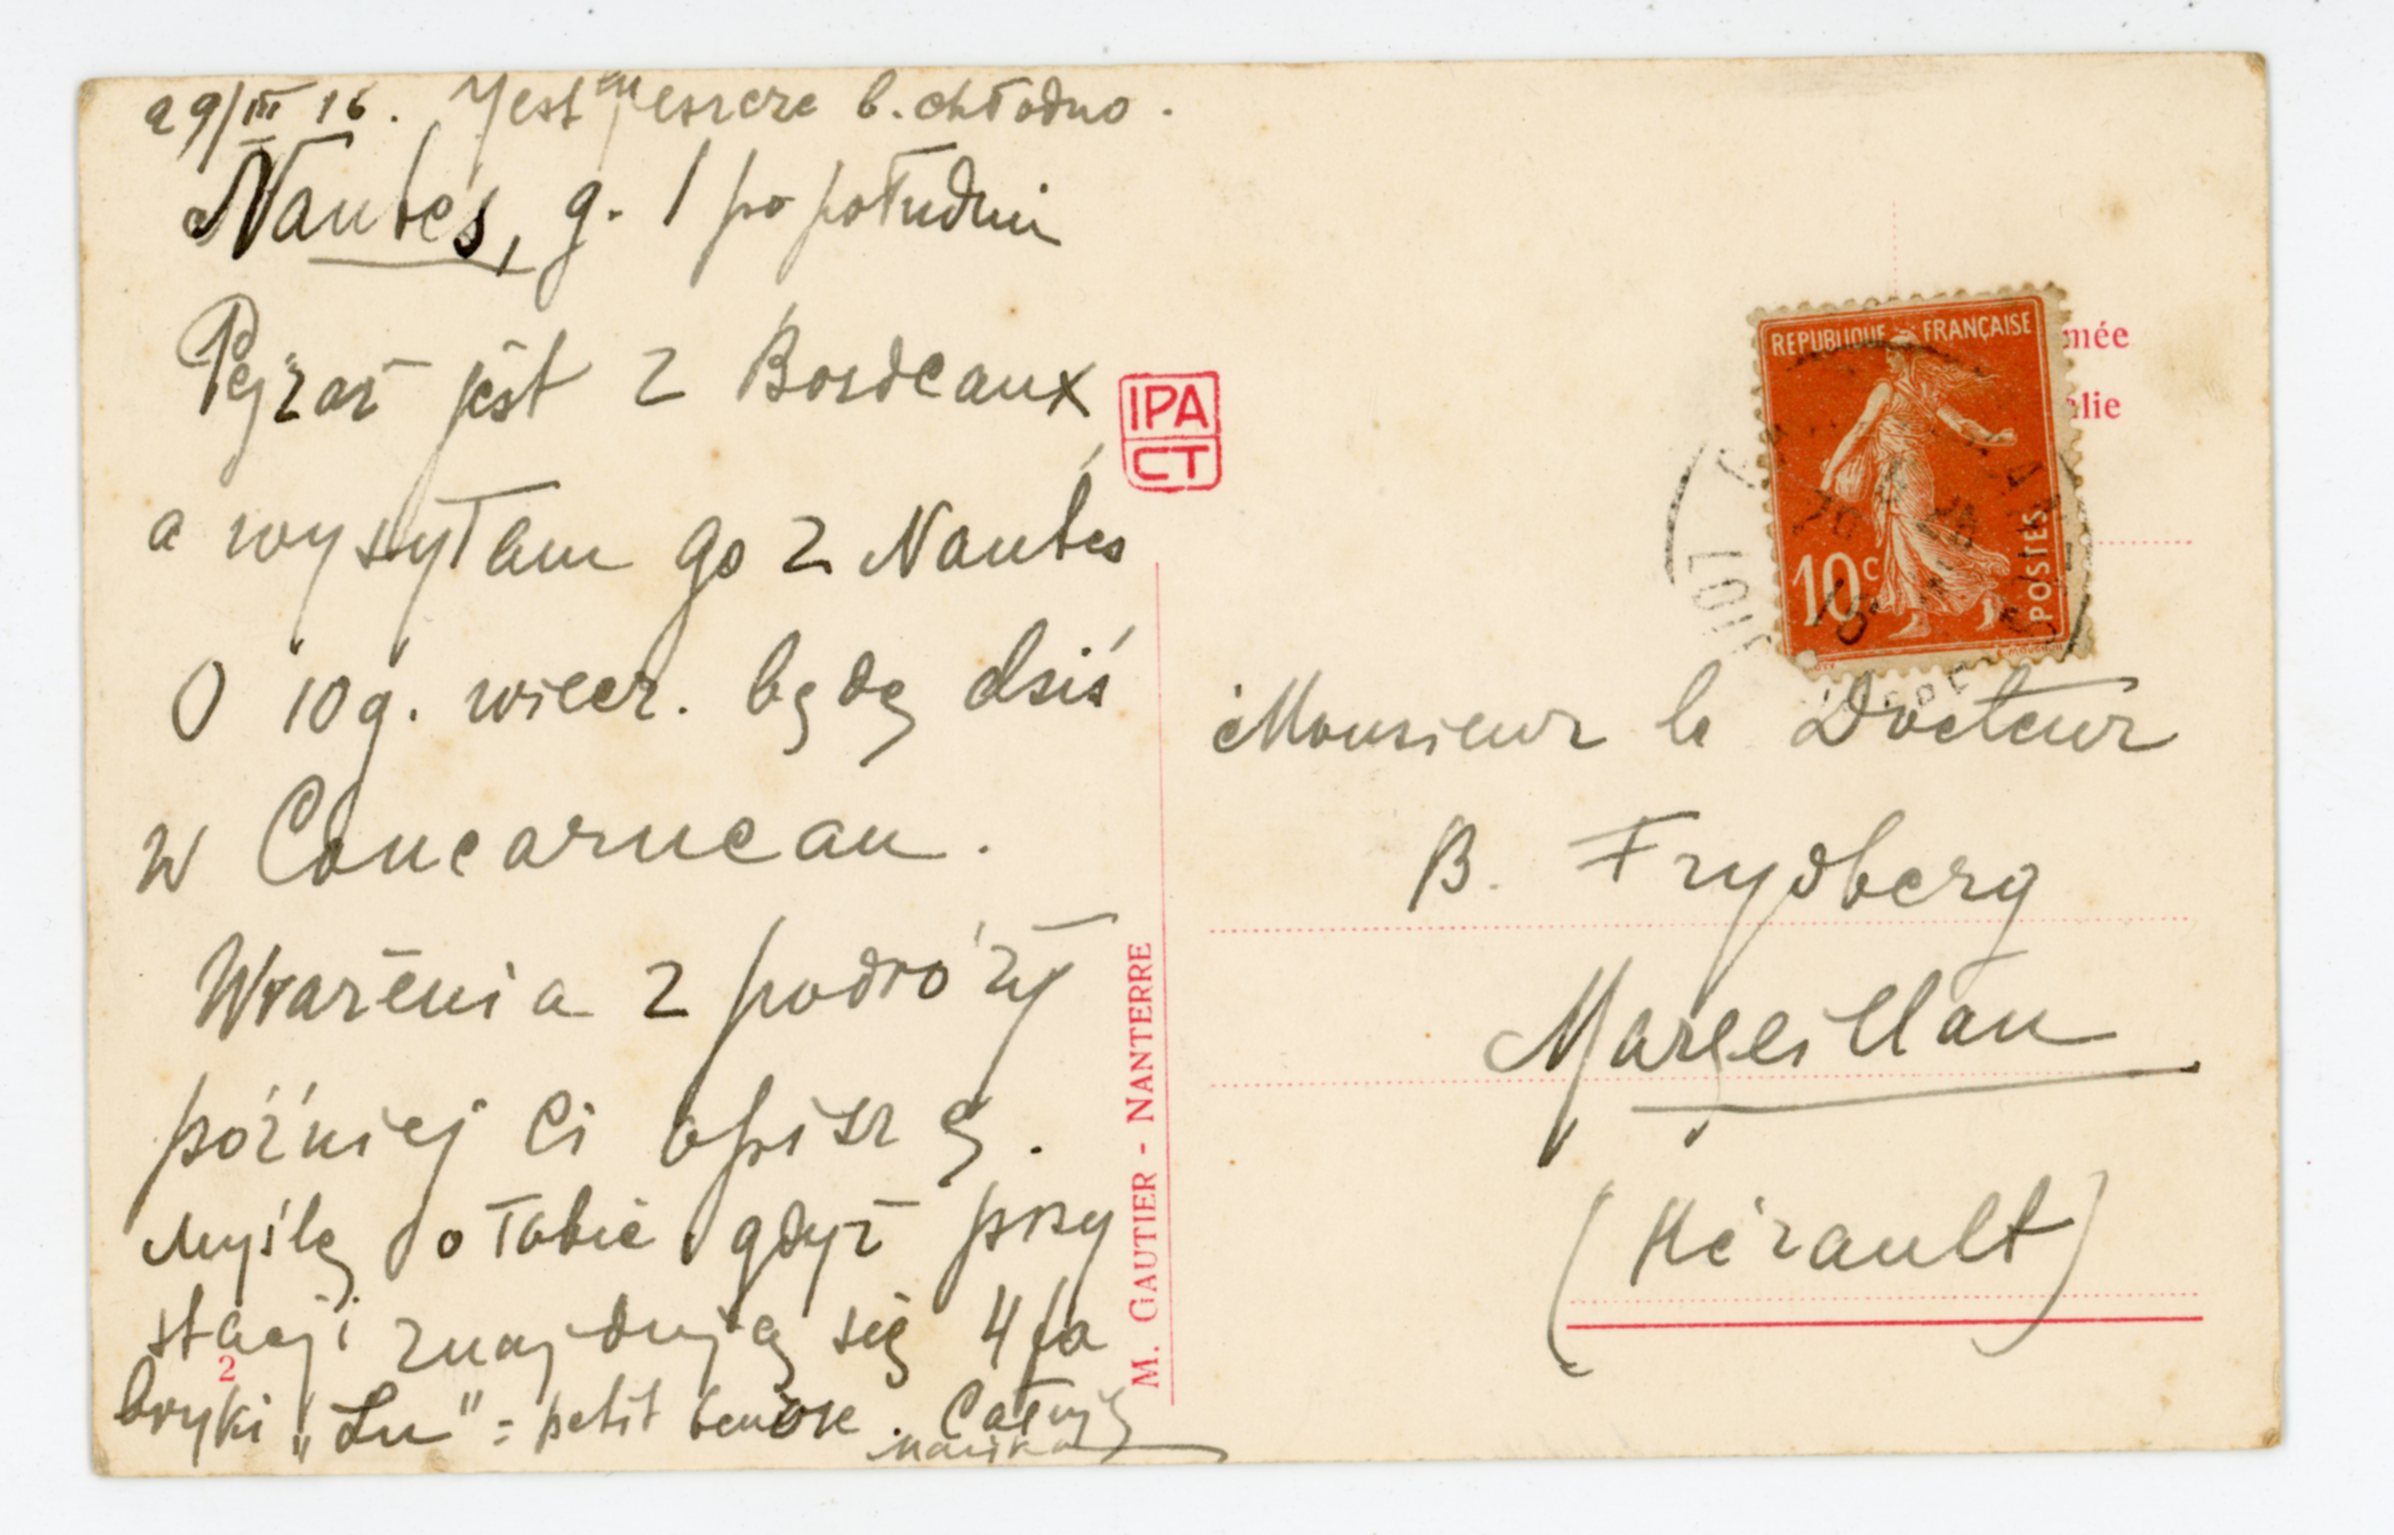 29/III 16. Jest tu jeszcze b. chłodno.
Nantes, g. 1 po południu
Pejzaż jest z Bordeaux
a wysyłam go z Nantes
O 10 g. wiecz. będę dziś
w Concarneau.
Wrażenia z podróży
później Ci opiszę.
Myślę o Tobie gdyż przy
stacji znajdują się 4 fa
bryki „Lu" = petit beurre. Całuję
2
IPA
CT
M. GAUTIER - NANTERRE
REPUBLIQUE FRANÇAISE
10c
POSTES
mée
élie
Monsieur le Docteur
B. Frydberg
Marseillan
(Hérault)